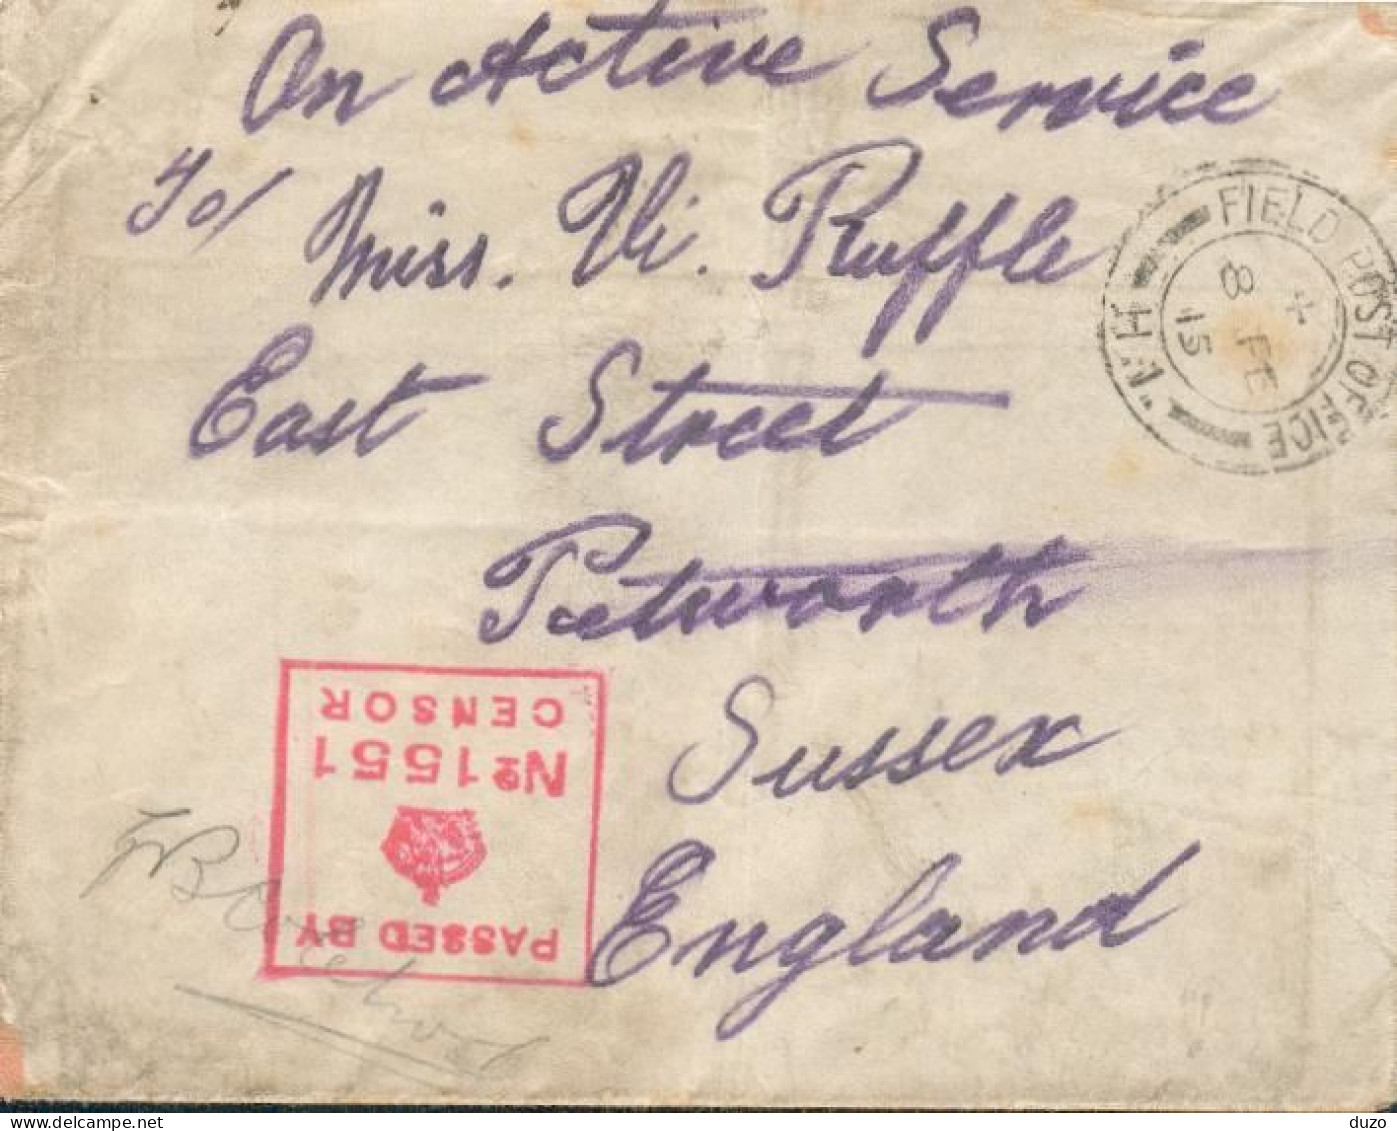 On Active Service
To/ Miss. Vi. Ruffle
East Street
Petworth
Sussex
England
FIELD POST OFFICE
H.1.
+
8 FE
15
PASSED BY
No 1551
CENSOR
duzo